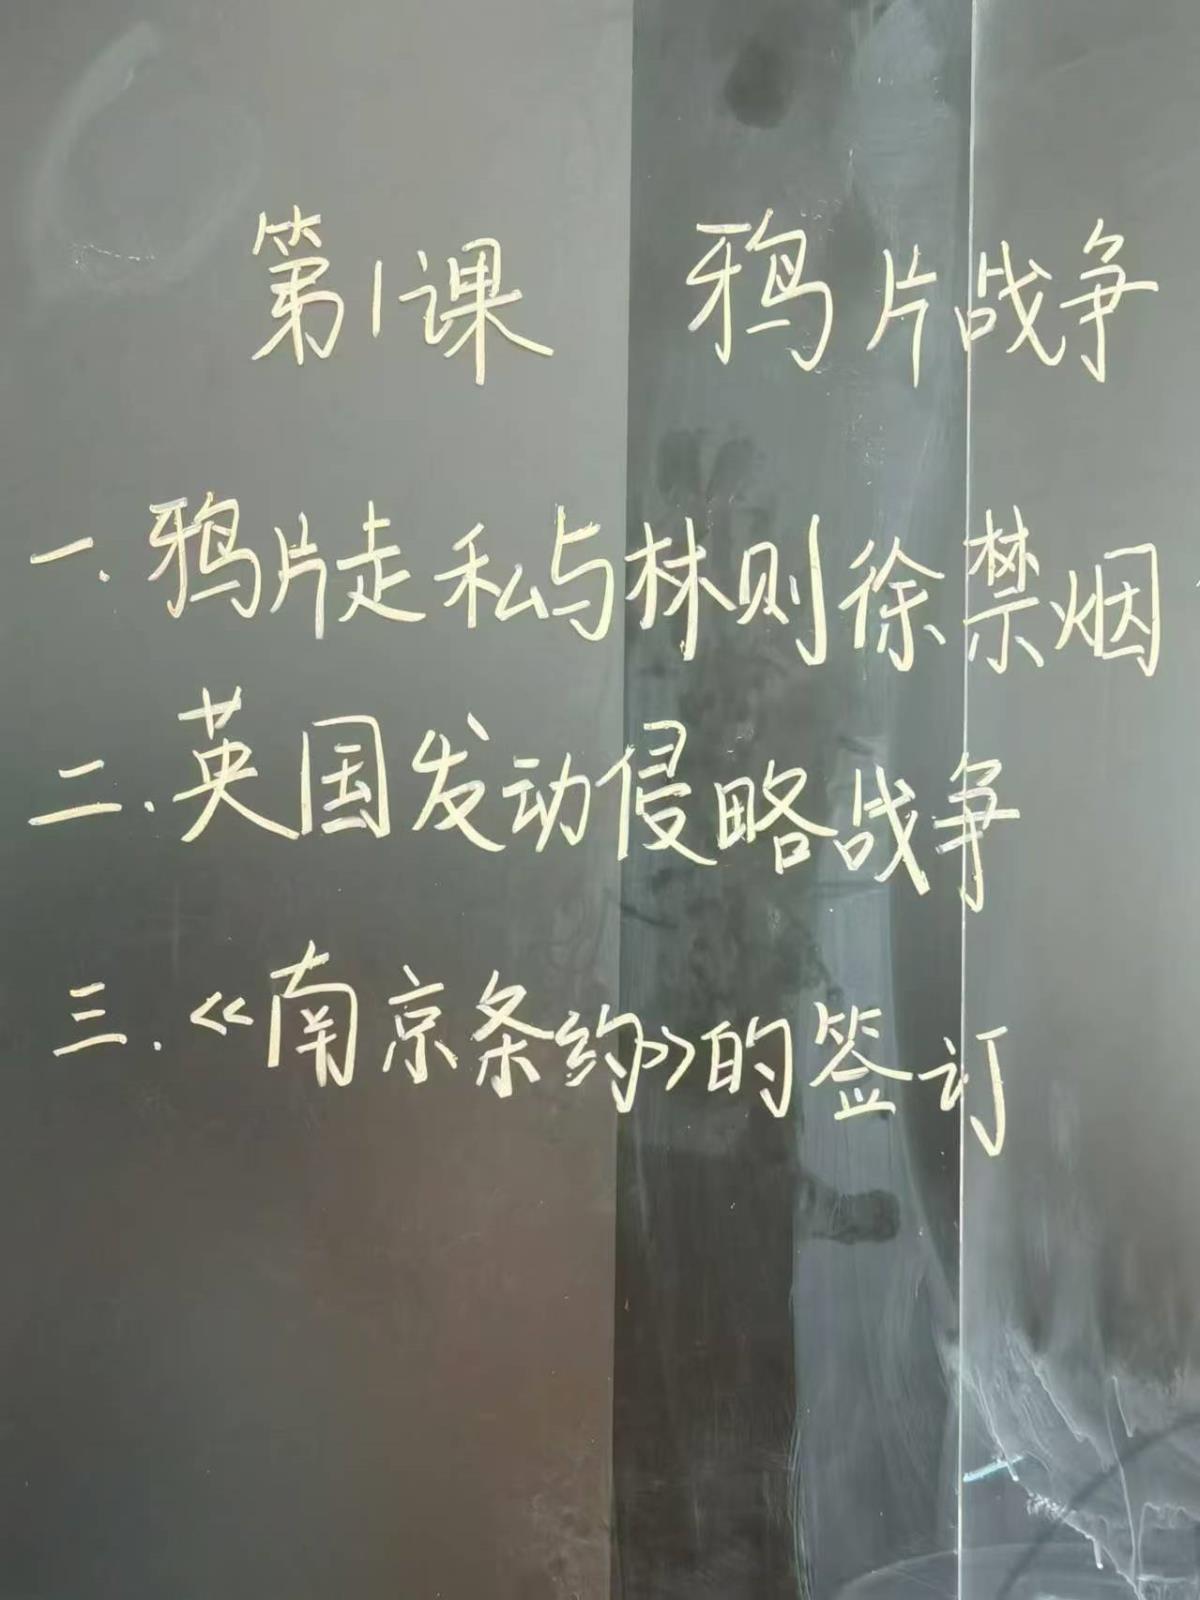 第1课 鸦片战争
一.鸦片走私与林则徐禁烟
二.英国发动侵略战争
三.《南京条约》的签订